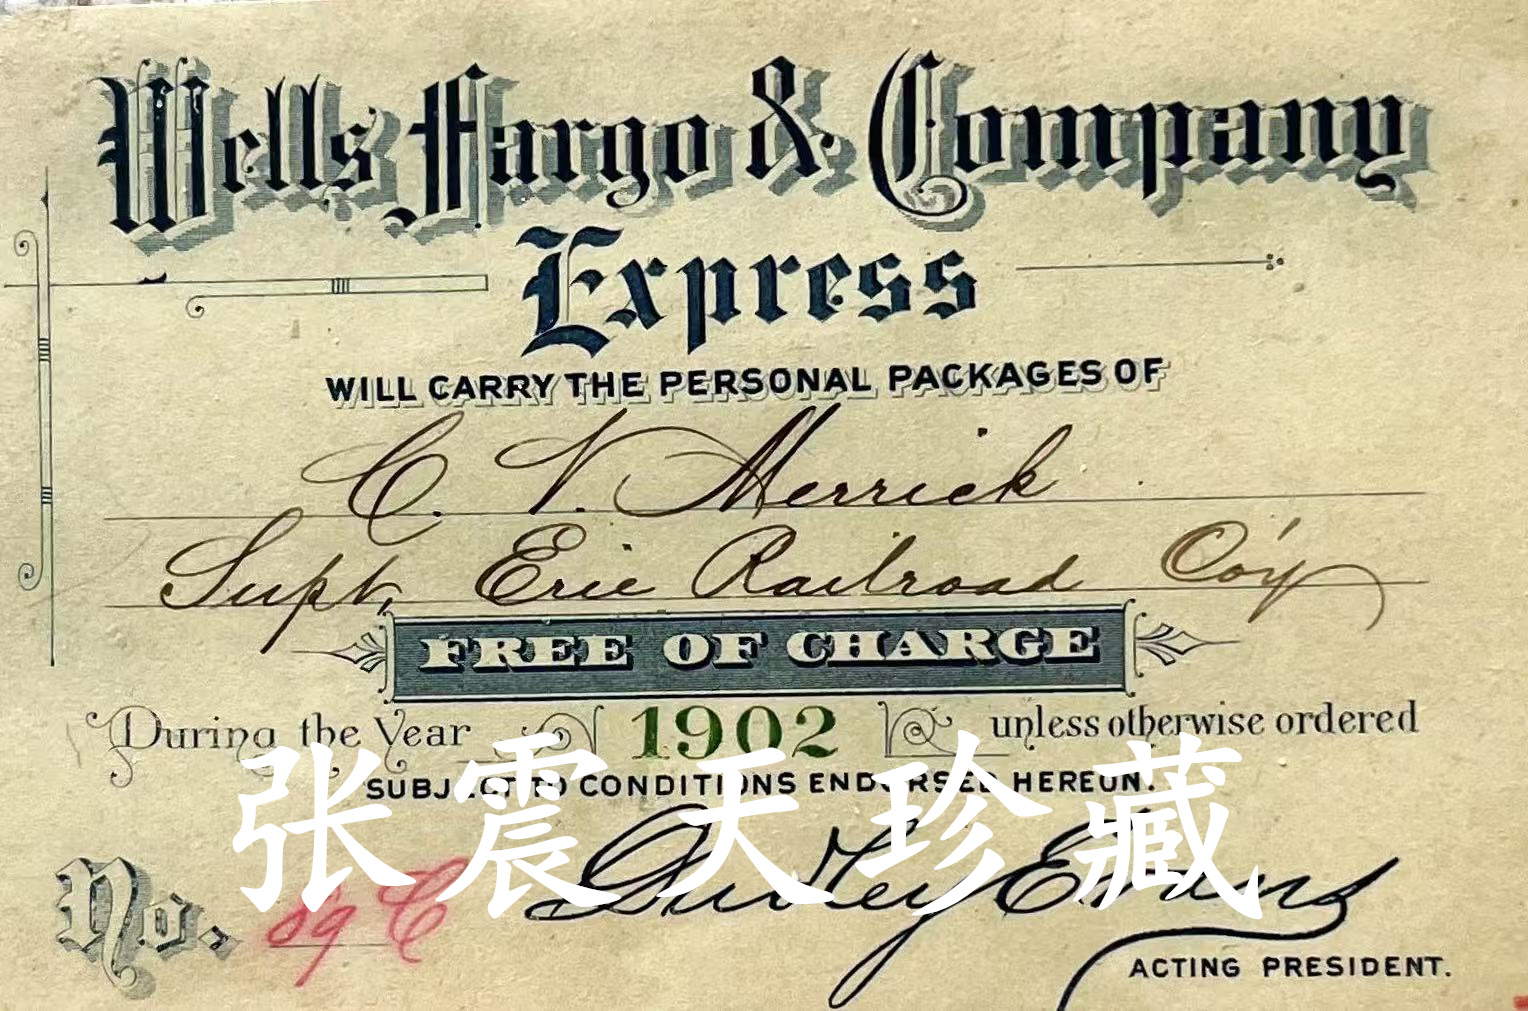 Wells Fargo & Company
Express
WILL CARRY THE PERSONAL PACKAGES OF
C. V. Merrick
Supt, Erie Railroad Co'y
FREE OF CHARGE
During the Year 1902 unless otherwise ordered
SUBJECT TO CONDITIONS ENDORSED HEREON.
张震天珍藏
No. C Dudley Evans
ACTING PRESIDENT.